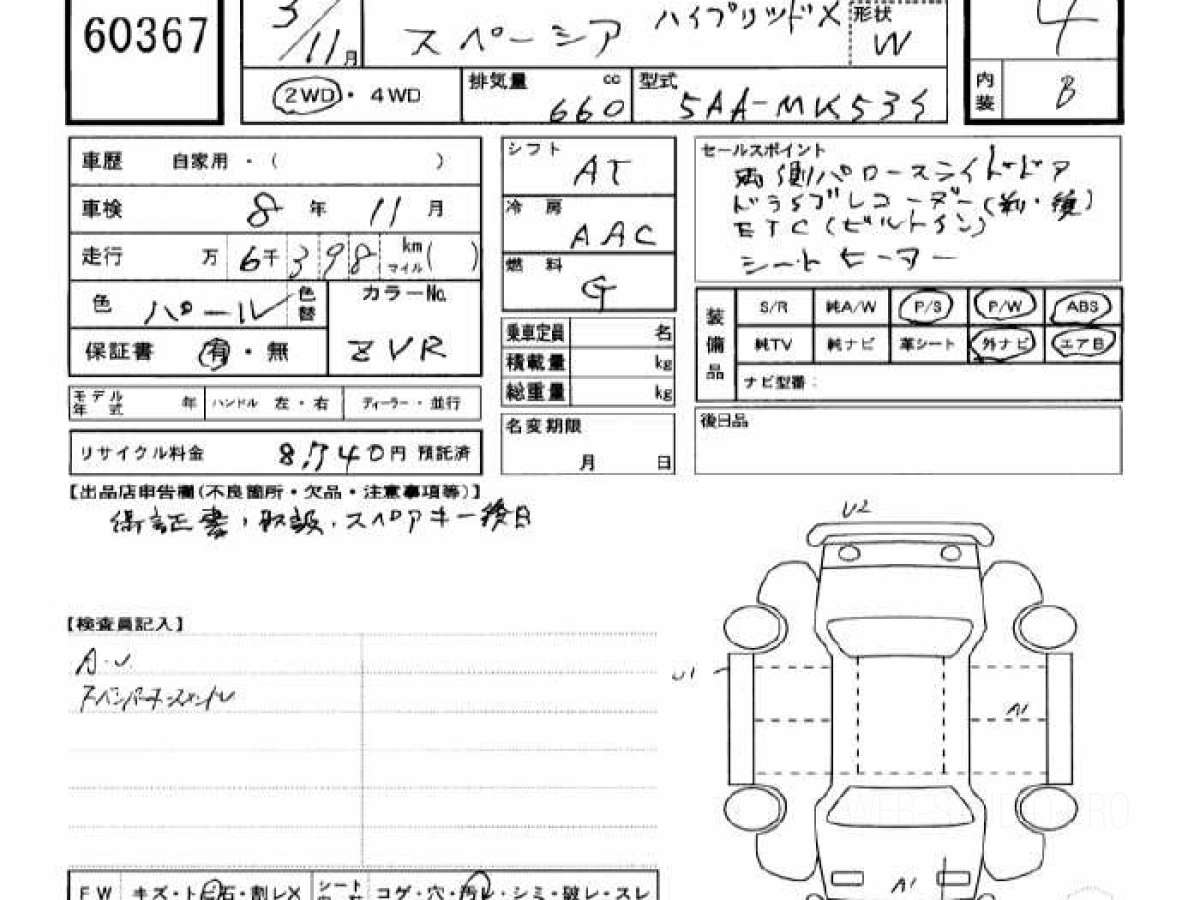 60367
3/11月
スペーシア ハイブリッドX
形状 W
4
2WD・4WD
排気量 660 cc
型式 5AA-MK53S
内装 B
車歴 自家用・( )
車検 8年 11月
走行 万 6千 398 km マイル( )
色 パール 色替
カラーNo. ZVR
保証書 有・無
モデル年式 年 ハンドル 左・右 ディーラー・並行
リサイクル料金 8,740円 預託済
シフト AT
冷房 AAC
燃料 G
乗車定員 名
積載量 kg
総重量 kg
名変期限
月 日
セールスポイント
両側パワースライドドア
ドライブレコーダー(前・後)
ETC(ビルトイン)
シートヒーター
装備品
S/R 純A/W P/S P/W ABS
純TV 純ナビ 革シート 外ナビ エアB
ナビ型番:
後日品
【出品店申告欄(不良箇所・欠品・注意事項等)】
保証書、取説、スペアキー後日
【検査員記入】
A.U.
U2
U1
A1
A1
FW キズ・トビ石・割レX シート コゲ・穴・汚レ・シミ・破レ・スレ